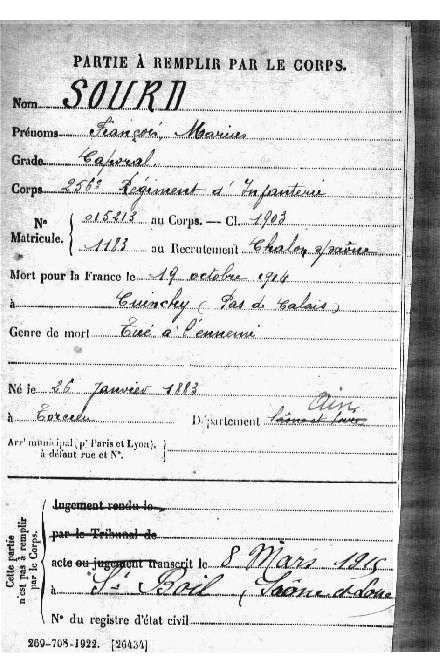 PARTIE À REMPLIR PAR LE CORPS.
Nom SOURD
Prénoms François, Marius
Grade Caporal
Corps 256e Régiment d'Infanterie
N° Matricule. { 015213 au Corps. — Cl. 1903
1183 au Recrutement Chalon s/saône
Mort pour la France le 19 octobre 1914
à Cuinchy (Pas de Calais)
Genre de mort Tué à l'ennemi
Né le 26 Janvier 1883
Ain
à Département Saône et Loire
Arr' municipal (p' Paris et Lyon), à défaut rue et N°.
Cette partie n'est pas à remplir par le Corps.
Jugement rendu le
par le Tribunal de
acte ou jugement transcrit le 8 Mars 1915
à St Boil (Saône et Loire
N° du registre d'état civil
269-708-1922. [26434]